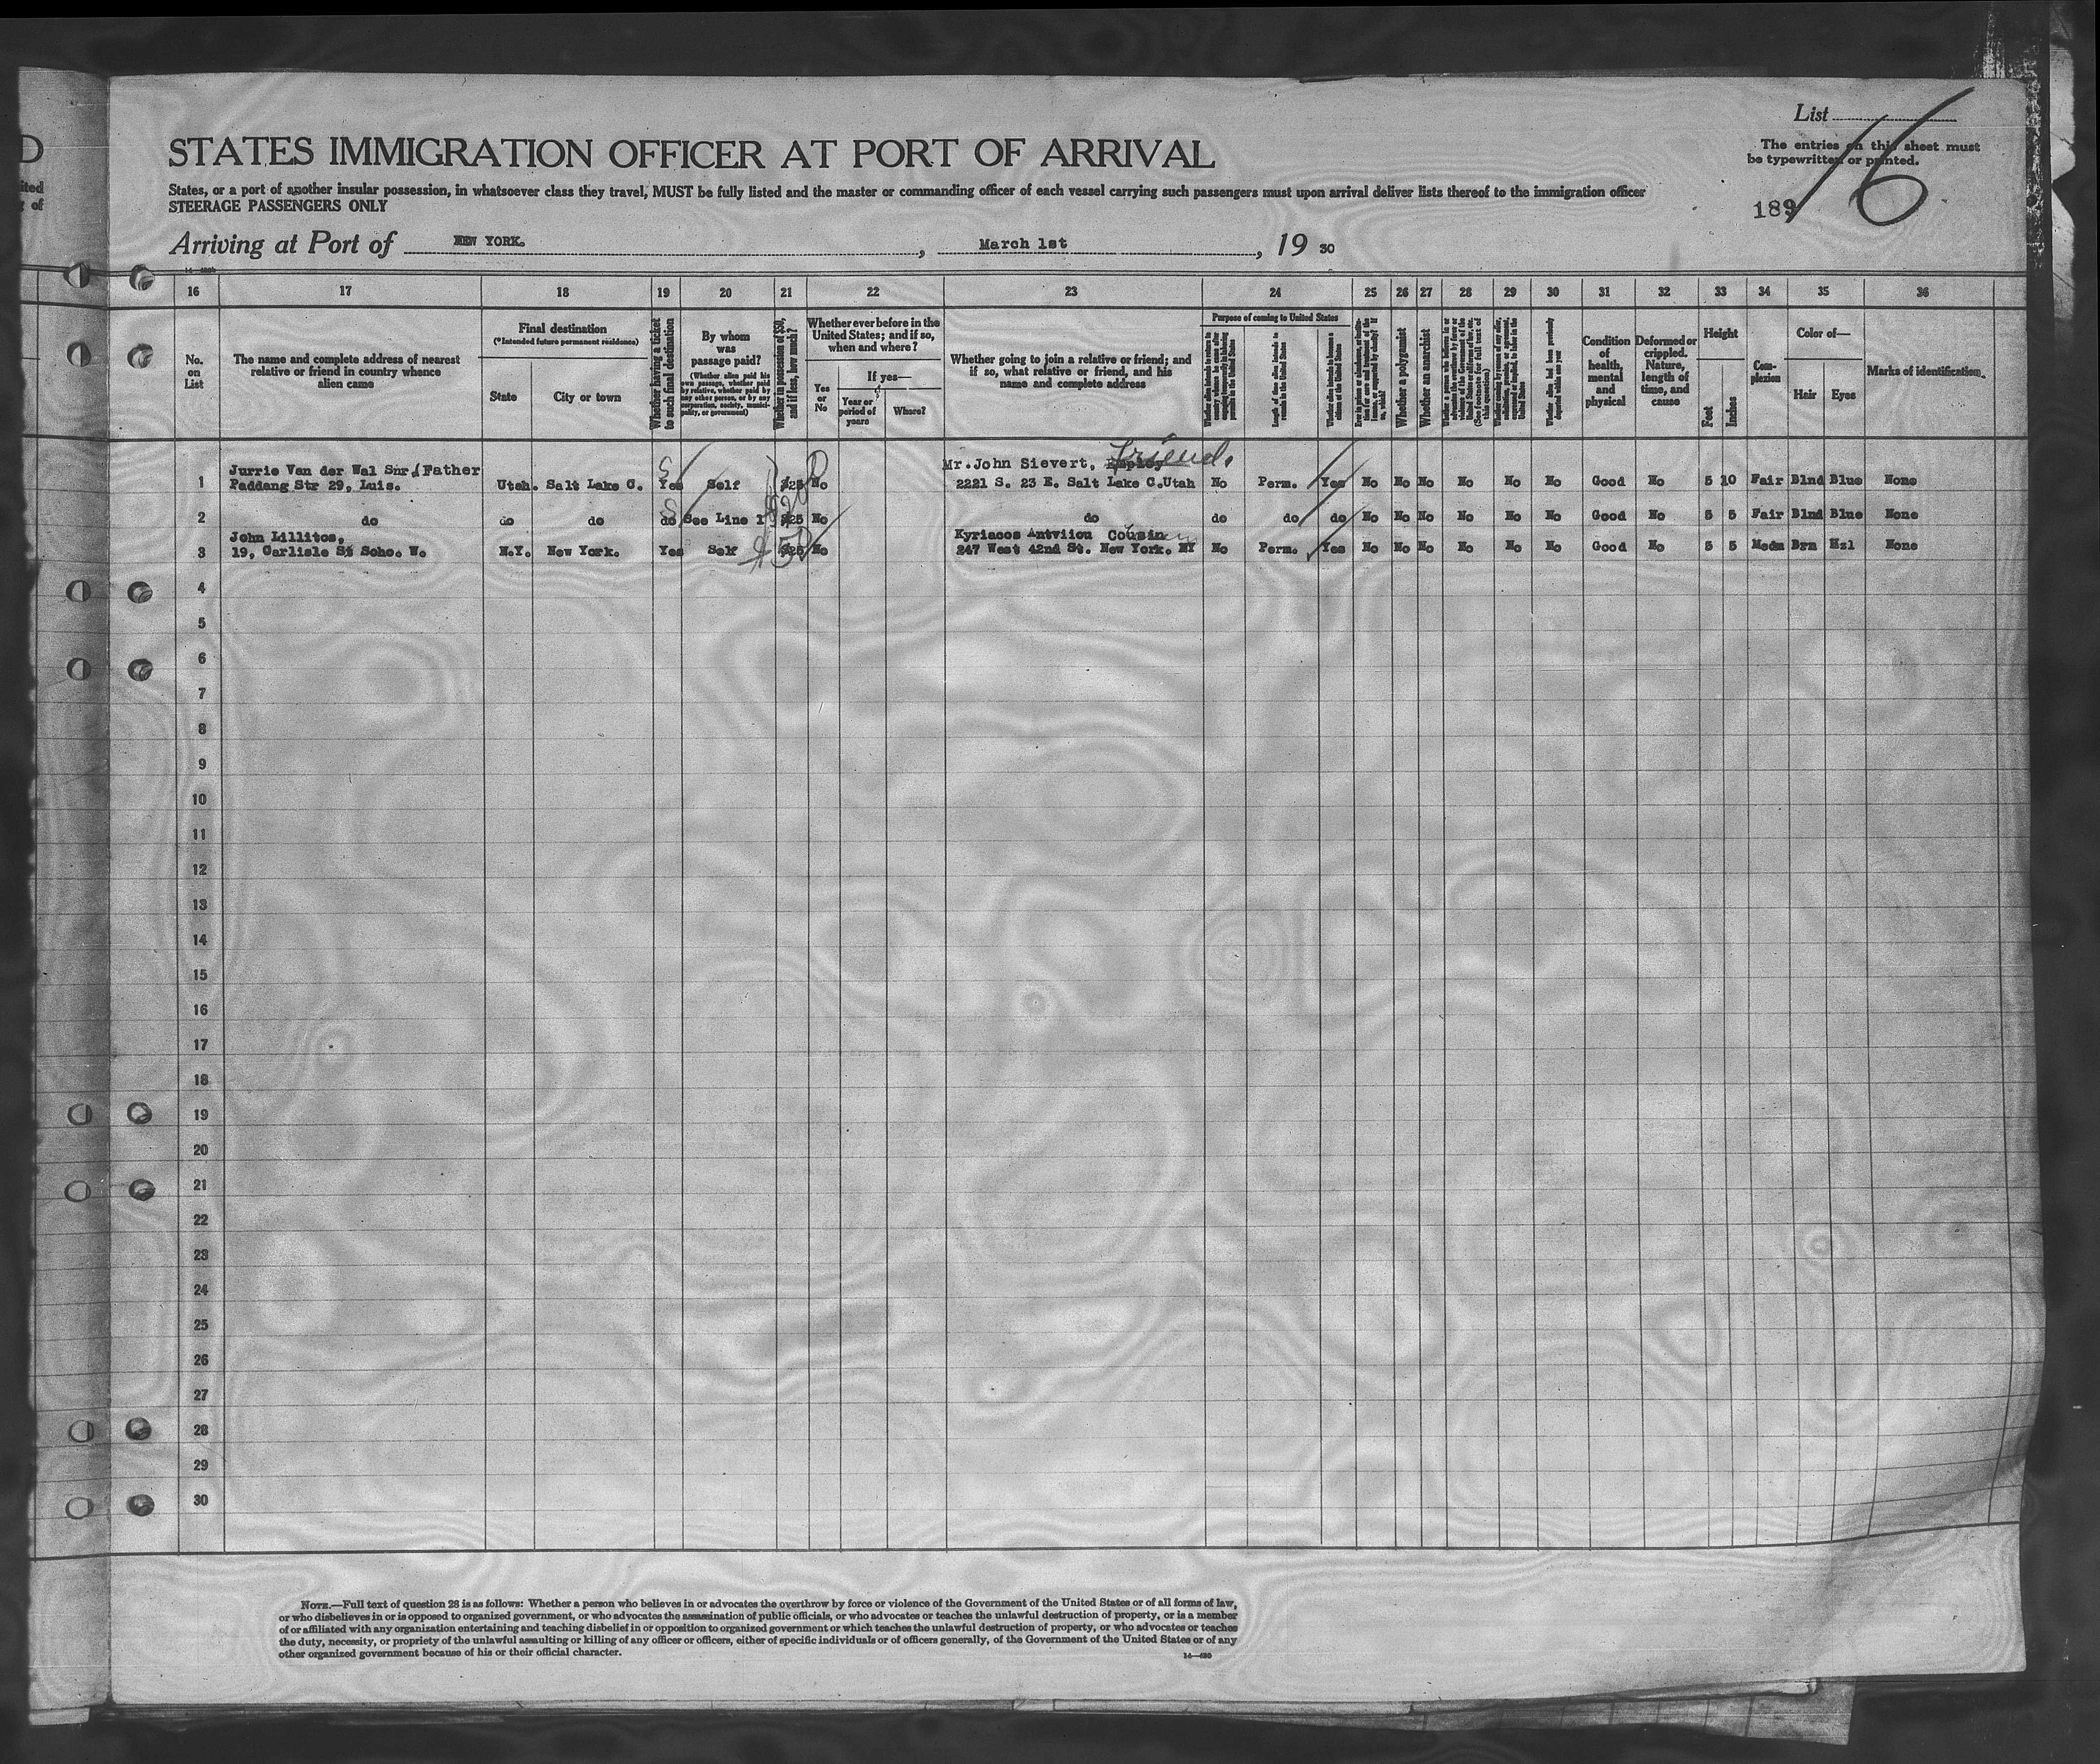 D
ited
of
List
16
The entries on this sheet must
be typewritten or printed.
189
STATES IMMIGRATION OFFICER AT PORT OF ARRIVAL
States, or a port of another insular possession, in whatsoever class they travel, MUST be fully listed and the master or commanding officer of each vessel carrying such passengers must upon arrival deliver lists thereof to the immigration officer
STEERAGE PASSENGERS ONLY
Arriving at Port of NEW YORK. , March 1st , 19 30
16 17 18 19 20 21 22 23 24 25 26 27 28 29 30 31 32 33 34 35 36
No.
on
List
The name and complete address of nearest
relative or friend in country whence
alien came
Final destination
(*Intended future permanent residence)
State
City or town
Whether having a ticket
to such final destination
By whom
was
passage paid?
(Whether alien paid his
own passage, whether paid
by relative, whether paid by
any other person, or by any
corporation, society, munici-
pality, or government)
Whether in possession of $50,
and if less, how much?
Whether ever before in the
United States; and if so,
when and where?
Yes
or
No
If yes—
Year or
period of
years
Where?
Whether going to join a relative or friend; and
if so, what relative or friend, and his
name and complete address
Purpose of coming to United States
Whether a polygamist
Whether an anarchist
Condition
of
health,
mental
and
physical
Deformed or
crippled.
Nature,
length of
time, and
cause
Height
Feet
Inches
Com-
plexion
Color of—
Hair
Eyes
Marks of identification.
Jurrie Van der Wal Snr. Father Mr. John Sievert, Employ Friend.
1 Paddang Str 29, Luis. Utah. Salt Lake C. Yes Self $25 No 2221 S. 23 E. Salt Lake C.Utah No Perm. Yes No No No No No No Good No 5 10 Fair Blnd Blue None
2 do do do do See Line 1 $25 No do do do do No No No No No No Good No 5 5 Fair Blnd Blue None
John Lillitos, Kyriacos Antviiou Cousin
3 19, Carlisle St Soho. W. N.Y. New York. Yes Self $50 $25 No 247 West 42nd St. New York. NY No Perm. Yes No No No No No No Good No 5 5 Medm Brn Hzl None
4
5
6
7
8
9
10
11
12
13
14
15
16
17
18
19
20
21
22
23
24
25
26
27
28
29
30
NOTE.—Full text of question 28 is as follows: Whether a person who believes in or advocates the overthrow by force or violence of the Government of the United States or of all forms of law,
or who disbelieves in or is opposed to organized government, or who advocates the assassination of public officials, or who advocates or teaches the unlawful destruction of property, or is a member
of or affiliated with any organization entertaining and teaching disbelief in or opposition to organized government or which teaches the unlawful destruction of property, or who advocates or teaches
the duty, necessity, or propriety of the unlawful assaulting or killing of any officer or officers, either of specific individuals or of officers generally, of the Government of the United States or of any
other organized government because of his or their official character.
14—480